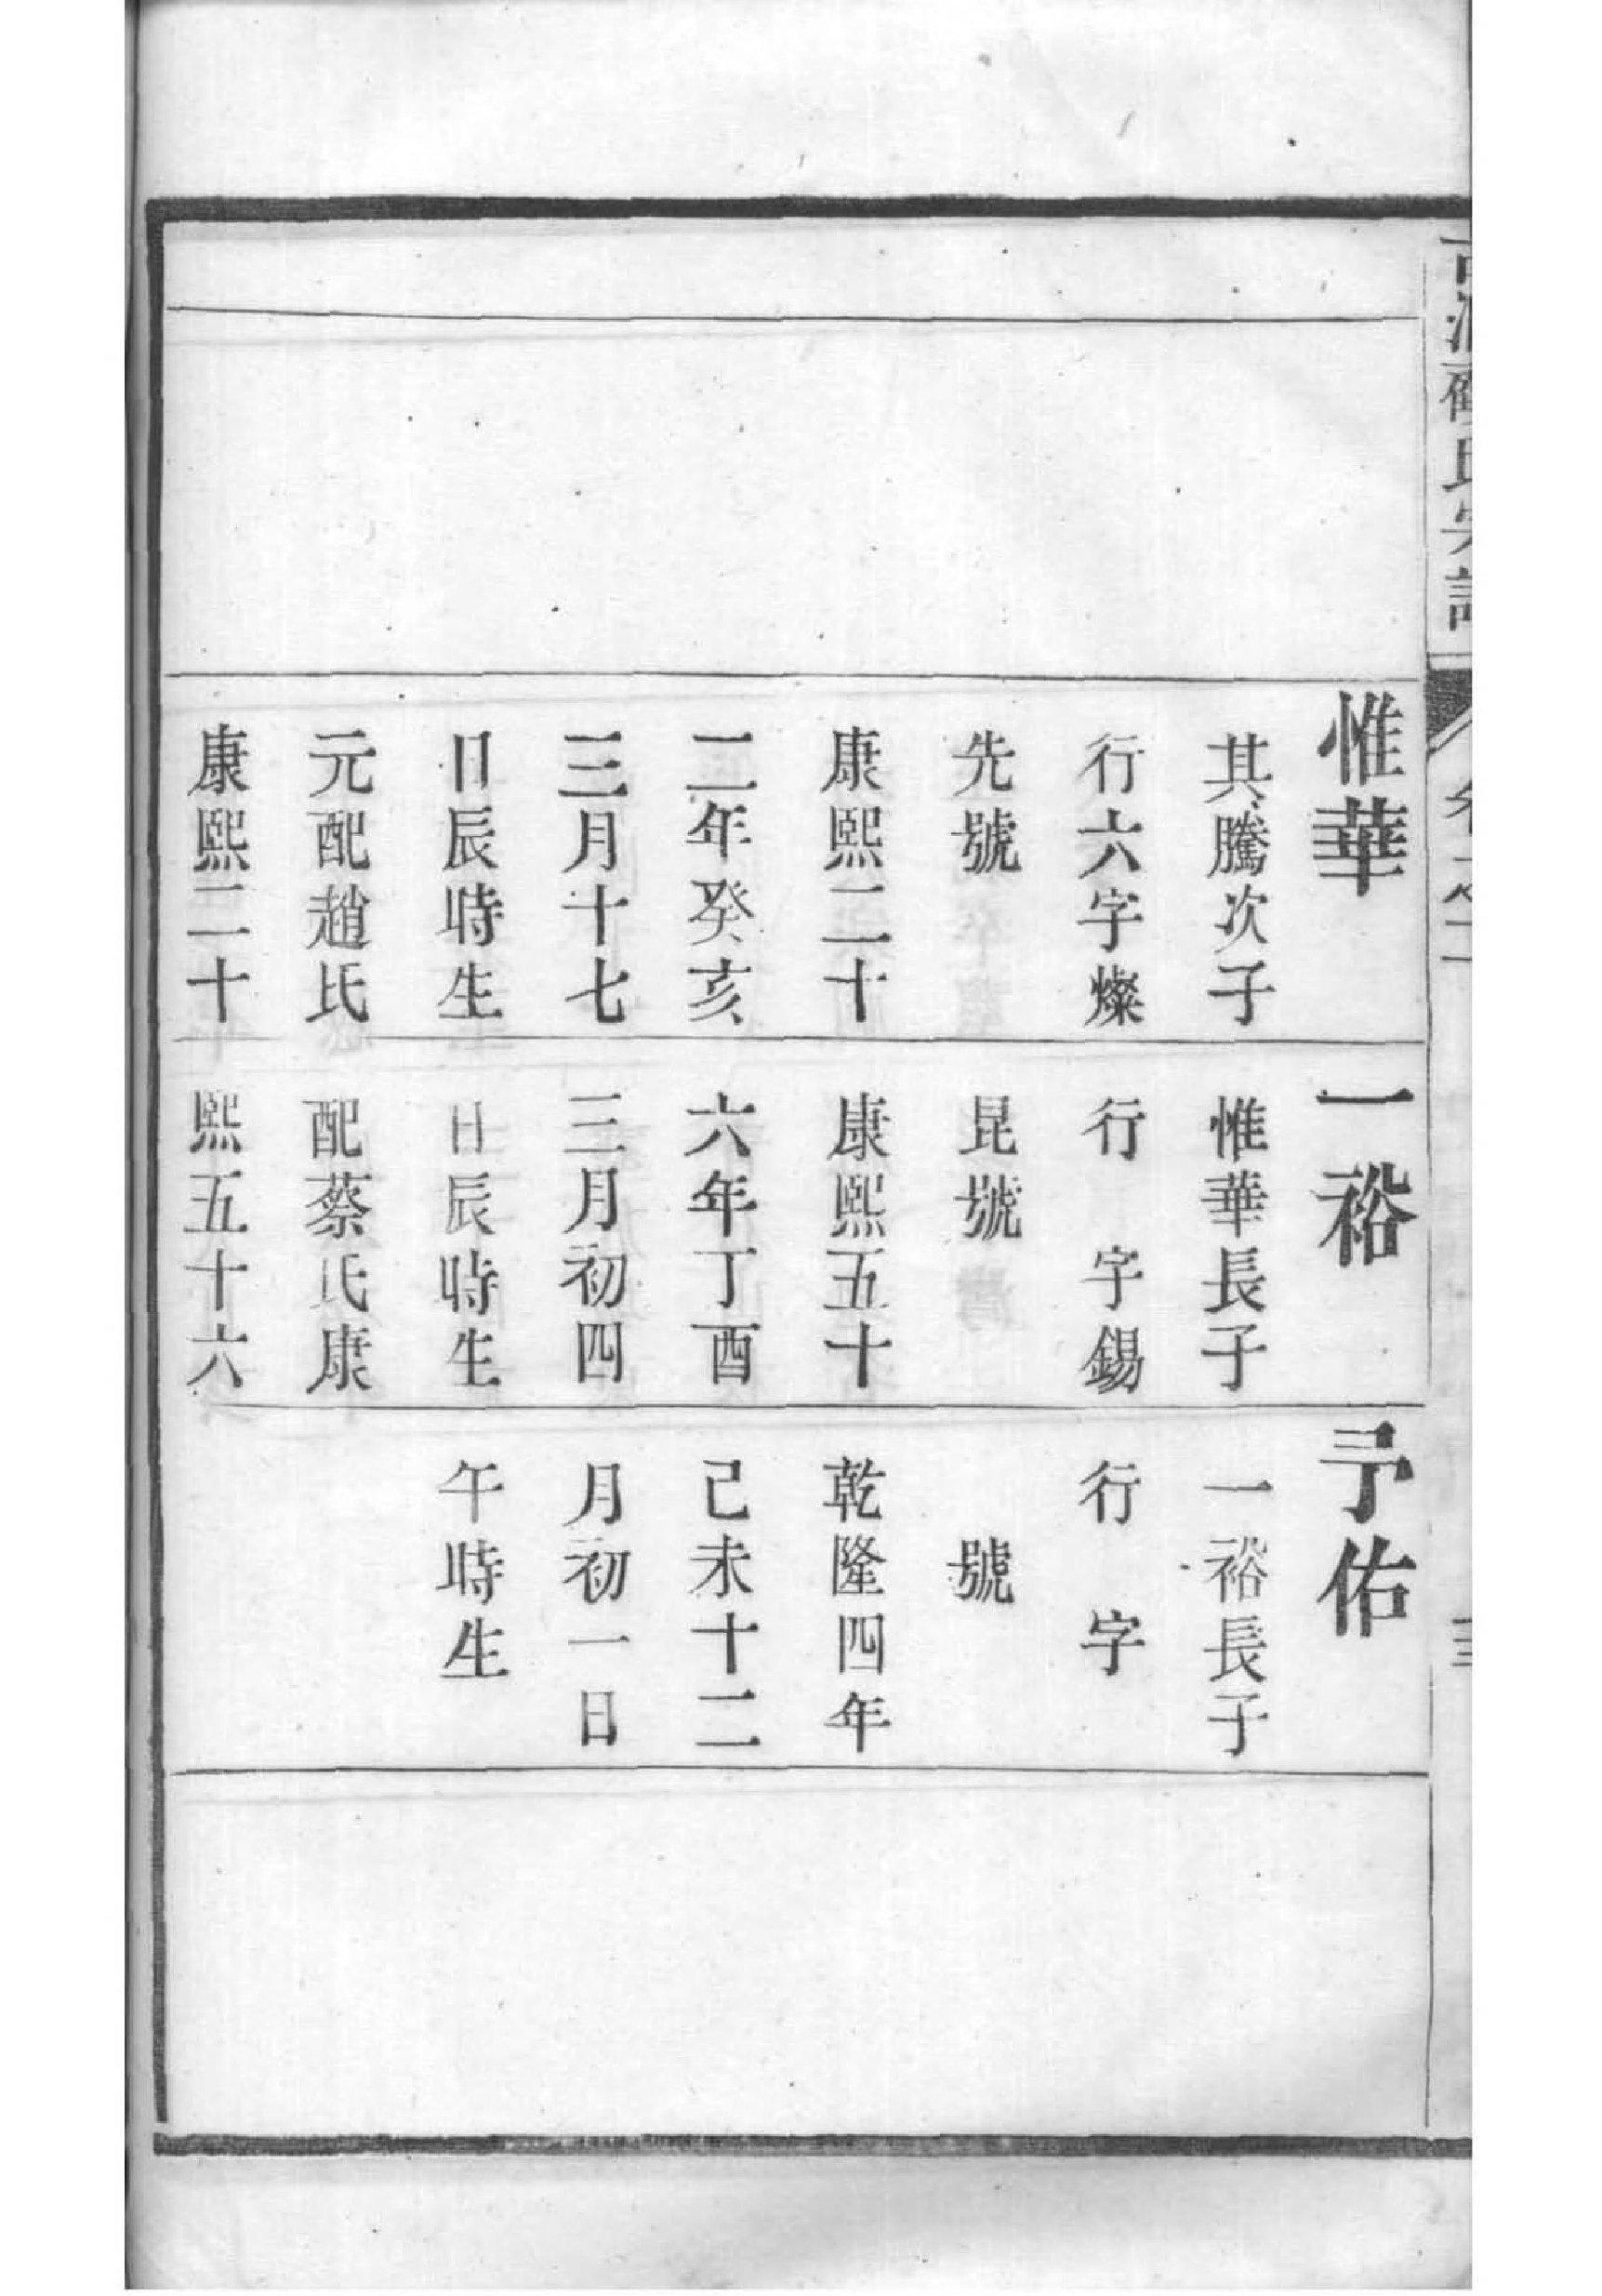 氏宗譜
卷之二
惟華
其騰次子
行六字燦
先號
康熙二十
二年癸亥
三月十七
日辰時生
元配趙氏
康熙二十
一裕
惟華長子
行 字錫
昆號
康熙五十
六年丁酉
三月初四
日辰時生
配蔡氏康
熙五十六
予佑
一裕長子
行 字
號
乾隆四年
己未十二
月初一日
午時生